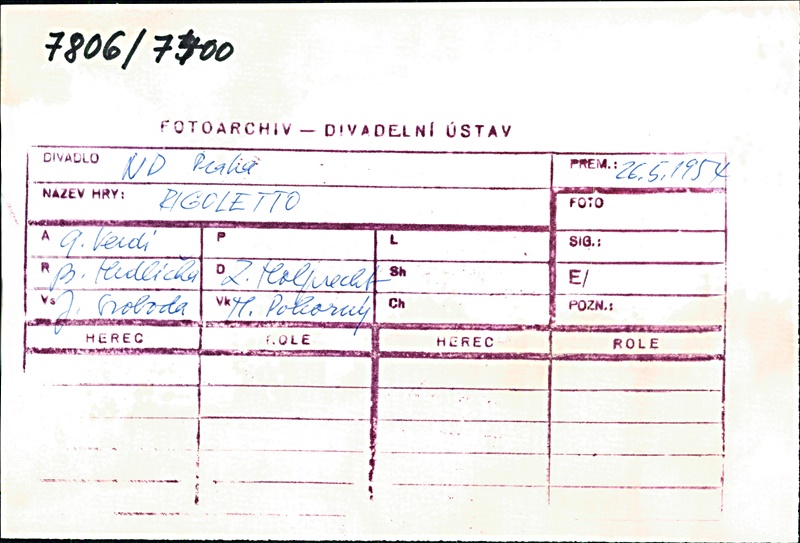 7806/7400
FOTOARCHIV — DIVADELNÍ ÚSTAV
DIVADLO ND Praha PREM.: 26.5.1954
NÁZEV HRY: RIGOLETTO FOTO
A G. Verdi P L SIG.:
R B. Hrdlička D Z. Holprecht Sh E/
Vs J. Svoboda Vk M. Pokorný Ch POZN.:
HEREC ROLE HEREC ROLE